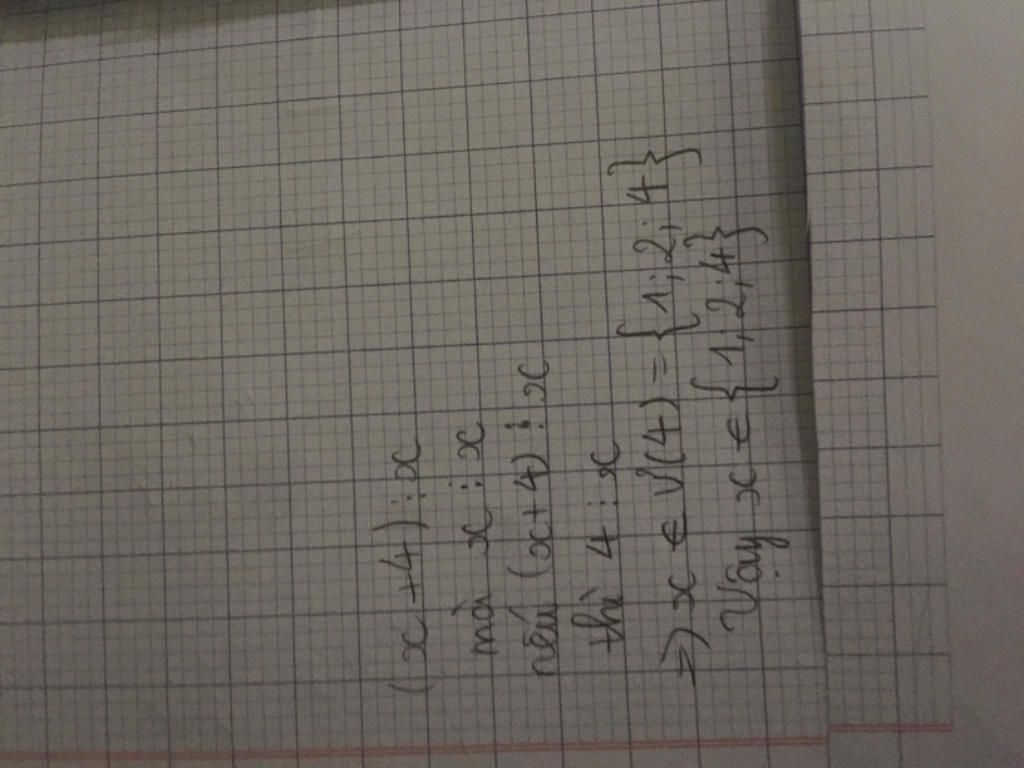 (x+4) ⋮ x
mà x ⋮ x
nếu (x+4) ⋮ x
thì 4 ⋮ x
=> x ∈ Ư(4) = {1; 2; 4}
Vậy x ∈ {1; 2; 4}